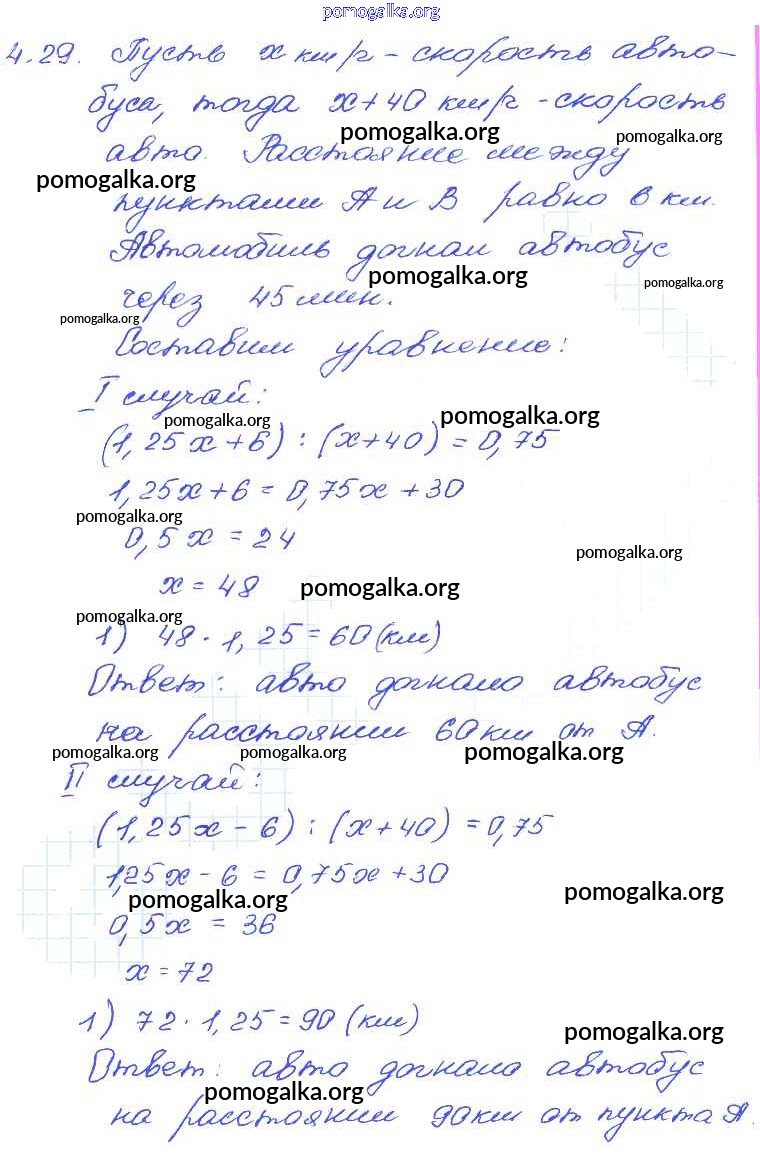 pomogalka.org
4.29. Пусть x км/г - скорость авто-
буса, тогда x+40 км/г - скорость
pomogalka.org pomogalka.org
авто. Расстояние между
pomogalka.org
пунктами А и В равно 6 км.
Автомобиль догнал автобус
pomogalka.org pomogalka.org
через 45 мин.
pomogalka.org
Составим уравнение:
I случай:
pomogalka.org pomogalka.org
(1,25x+6) : (x+40) = 0,75
1,25x+6 = 0,75x+30
pomogalka.org
0,5x = 24
pomogalka.org
x = 48 pomogalka.org
pomogalka.org
1) 48 · 1,25 = 60 (км)
Ответ: авто догнало автобус
на расстоянии 60 км от А.
pomogalka.org pomogalka.org pomogalka.org
II случай:
(1,25x - 6) : (x+40) = 0,75
1,25x - 6 = 0,75x+30
pomogalka.org pomogalka.org
0,5x = 36
x = 72
1) 72 · 1,25 = 90 (км)
pomogalka.org
Ответ: авто догнало автобус
pomogalka.org
на расстоянии 90 км от пункта А.